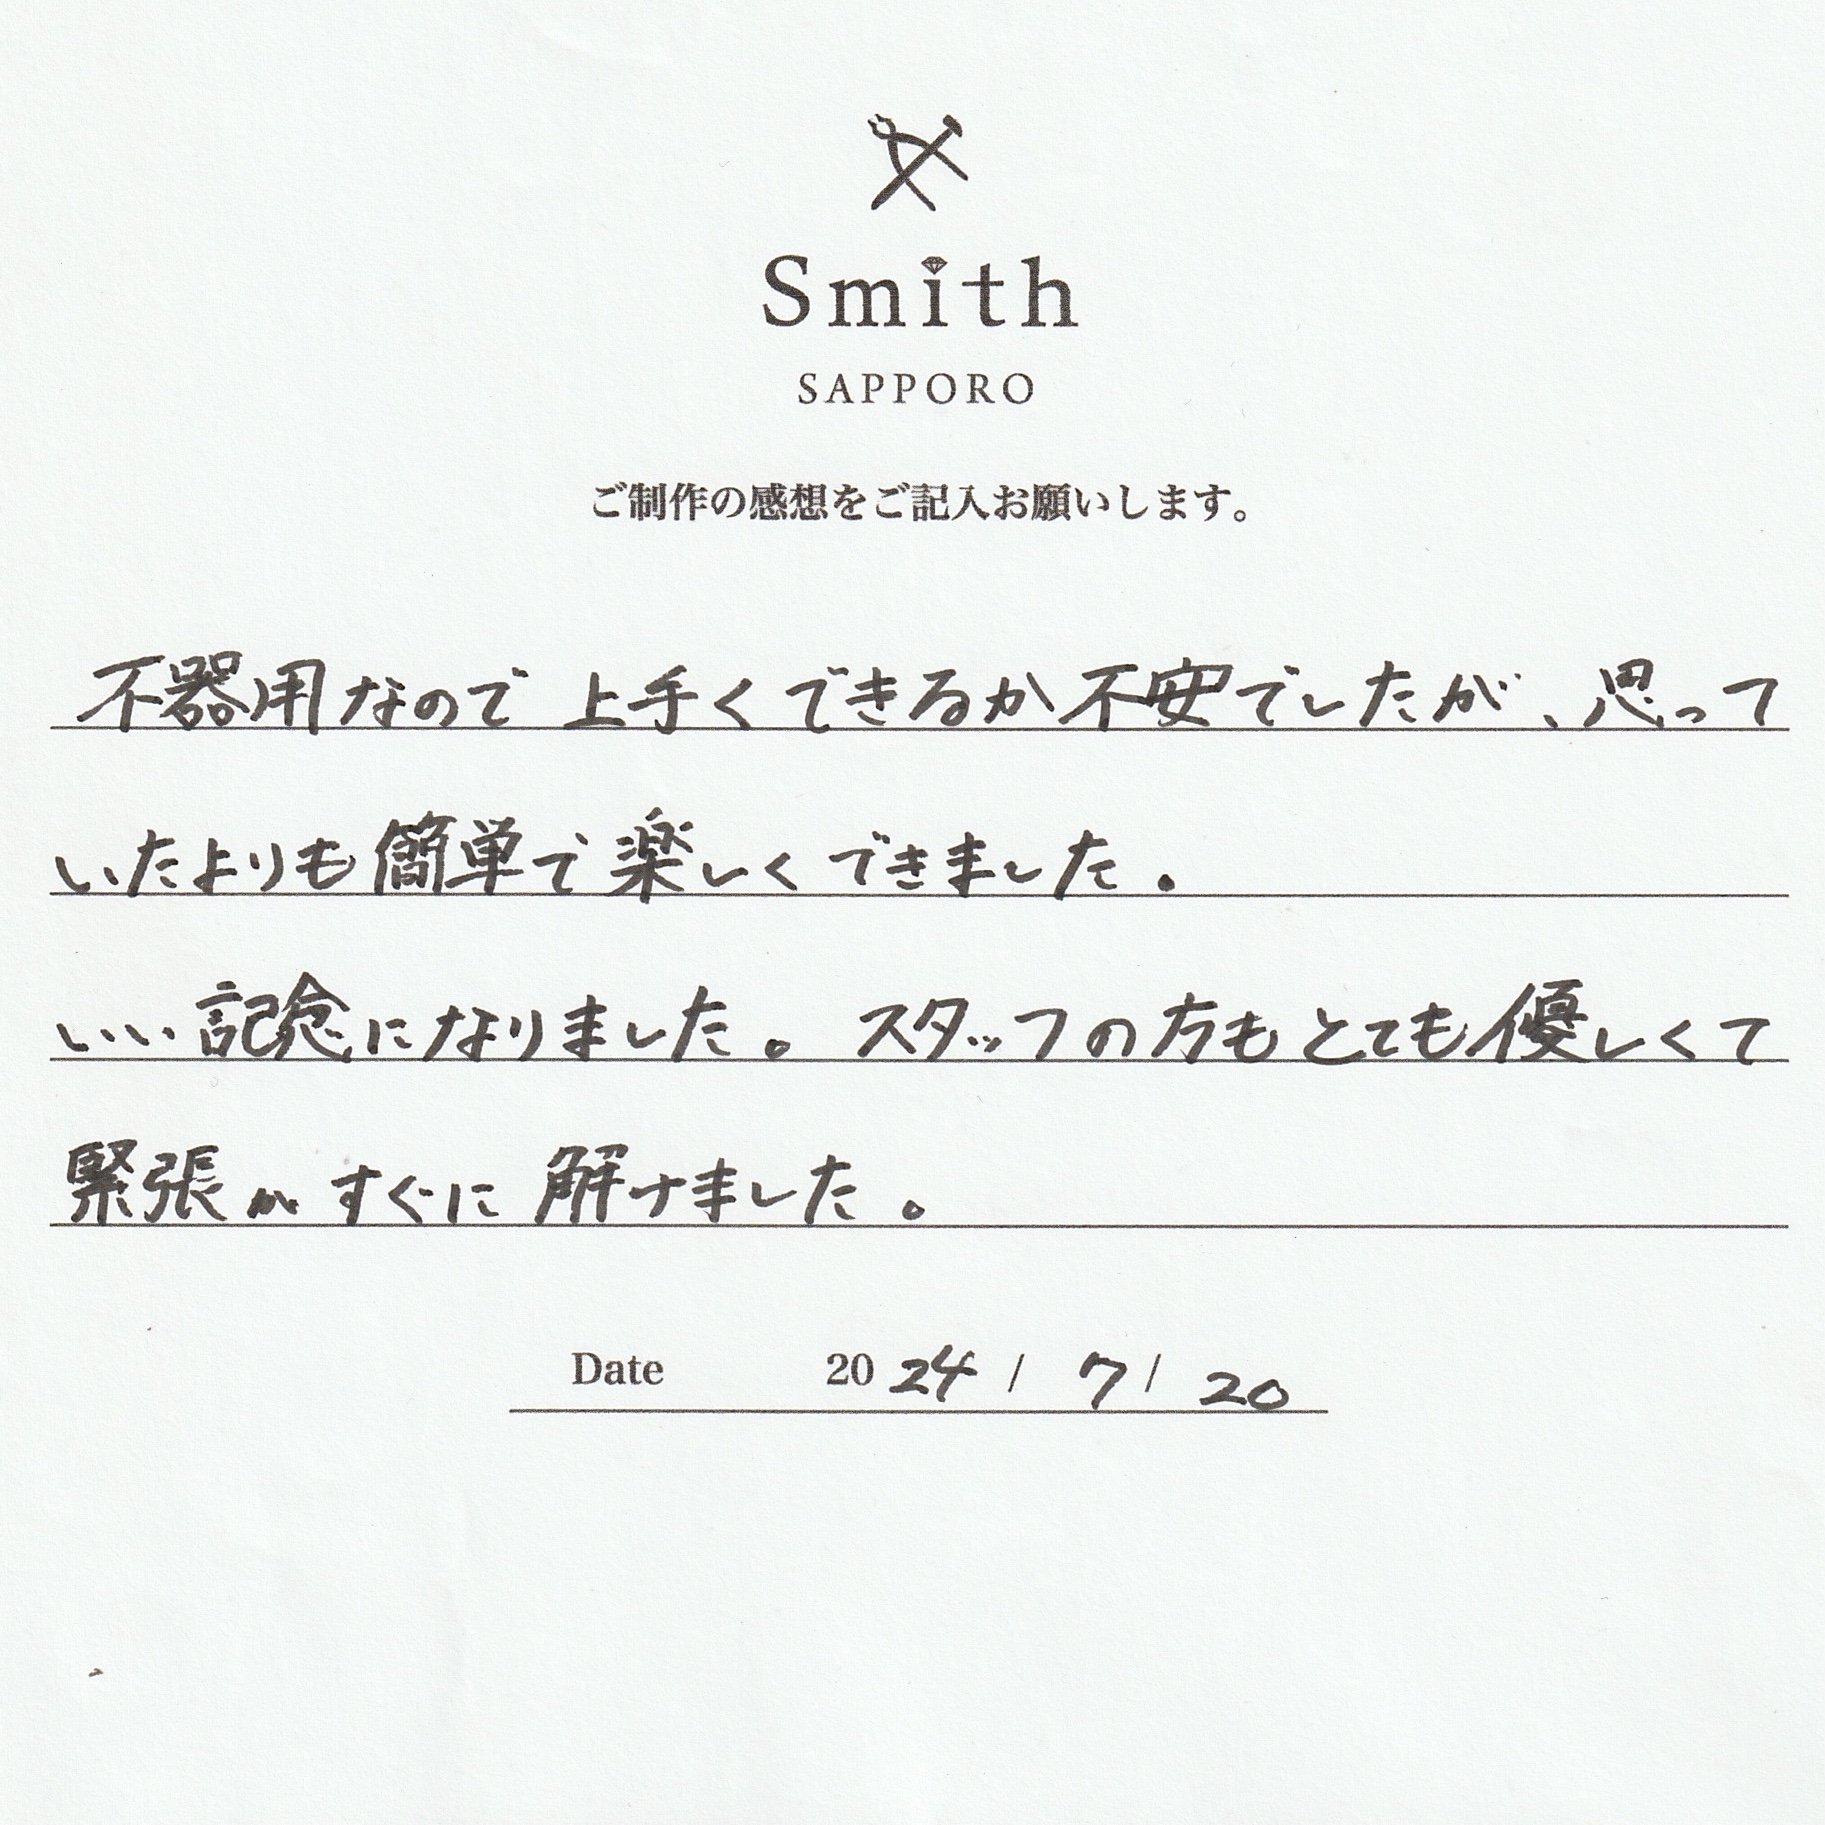 Smith
SAPPORO
ご制作の感想をご記入お願いします。
不器用なので上手くできるか不安でしたが、思って
いたよりも簡単で楽しくできました。
いい記念になりました。スタッフの方もとても優しくて
緊張がすぐに解けました。
Date 2024 / 7 / 20